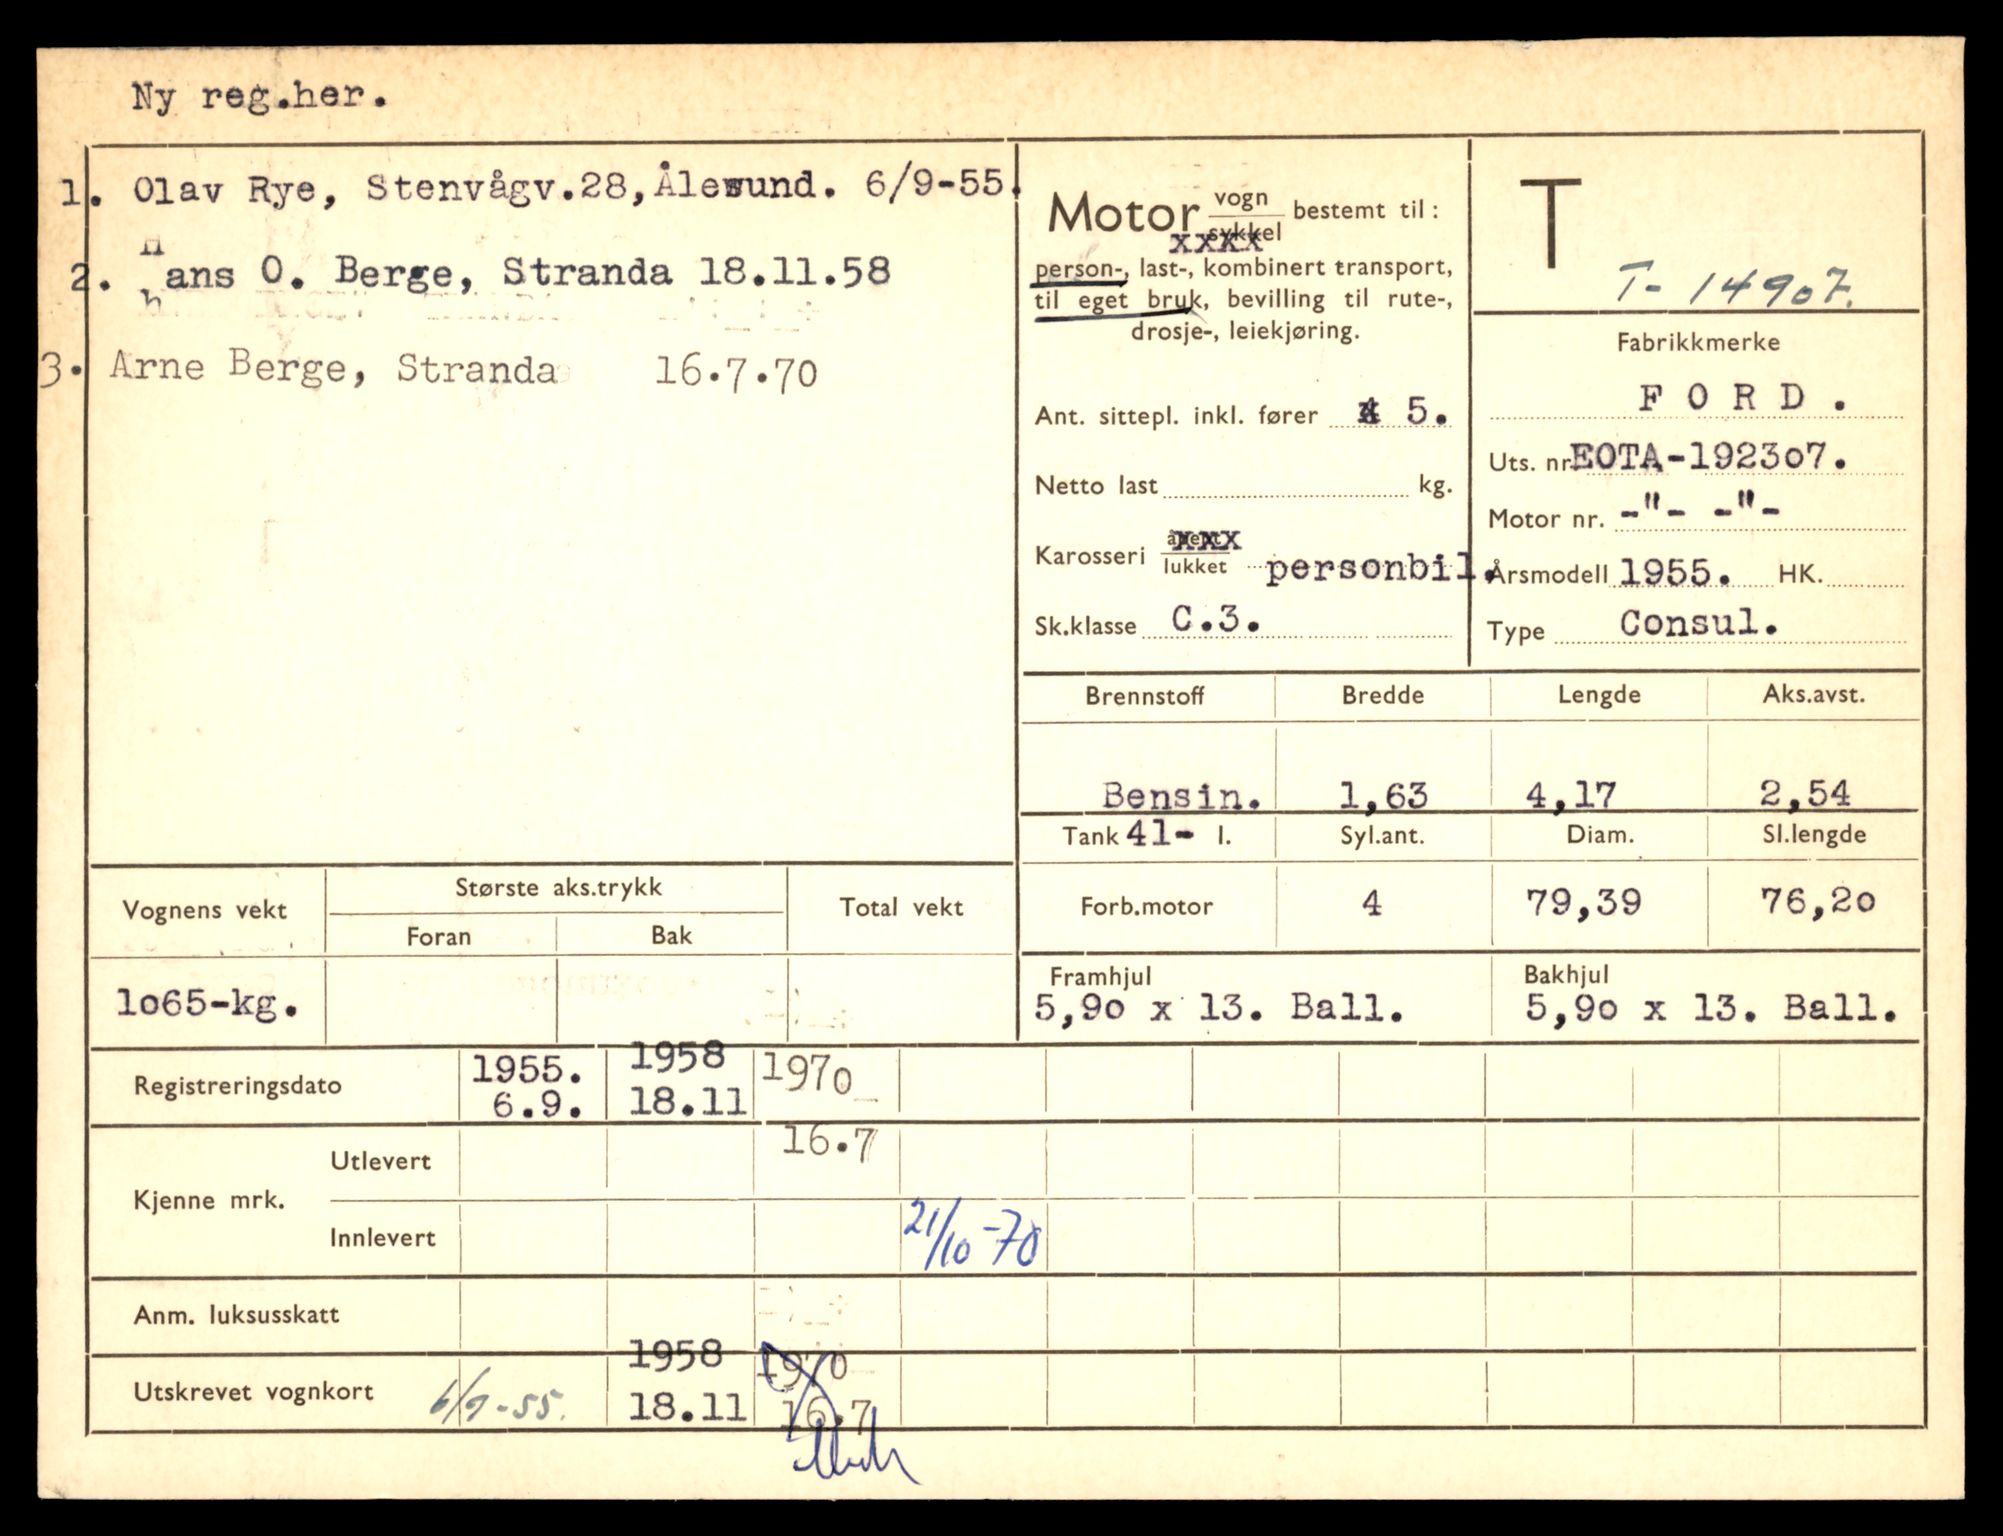 Ny reg.her.
1. Olav Rye, Stenvågv.28, Ålesund. 6/9-55.
2. Hans O. Berge, Stranda 18.11.58
3. Arne Berge, Stranda 16.7.70
Motor vogn bestemt til:
sykkel
xxxx
person-, last-, kombinert transport,
til eget bruk, bevilling til rute-,
drosje-, leiekjøring.
Ant. sittepl. inkl. fører 5.
Netto last kg.
Karosseri åpent xxx
lukket personbil.
Sk.klasse C.3.
T
T-14907.
Fabrikkmerke
FORD.
Uts. nr. EOTA-1923o7.
Motor nr. -"- -"-
Årsmodell 1955. HK.
Type Consul.
Brennstoff Bredde Lengde Aks.avst.
Bensin. 1,63 4,17 2,54
Tank 41- l. Syl.ant. Diam. Sl.lengde
Forb.motor 4 79,39 76,2o
Framhjul Bakhjul
5,9o x 13. Ball. 5,9o x 13. Ball.
Vognens vekt Største aks.trykk Total vekt
Foran Bak
1o65-kg.
Registreringsdato 1955. 1958 1970
6.9. 18.11
Kjenne mrk. Utlevert 16.7
Innlevert 21/10-70
Anm. luksusskatt
Utskrevet vognkort 6/9-55. 1958 1970
18.11 16.7